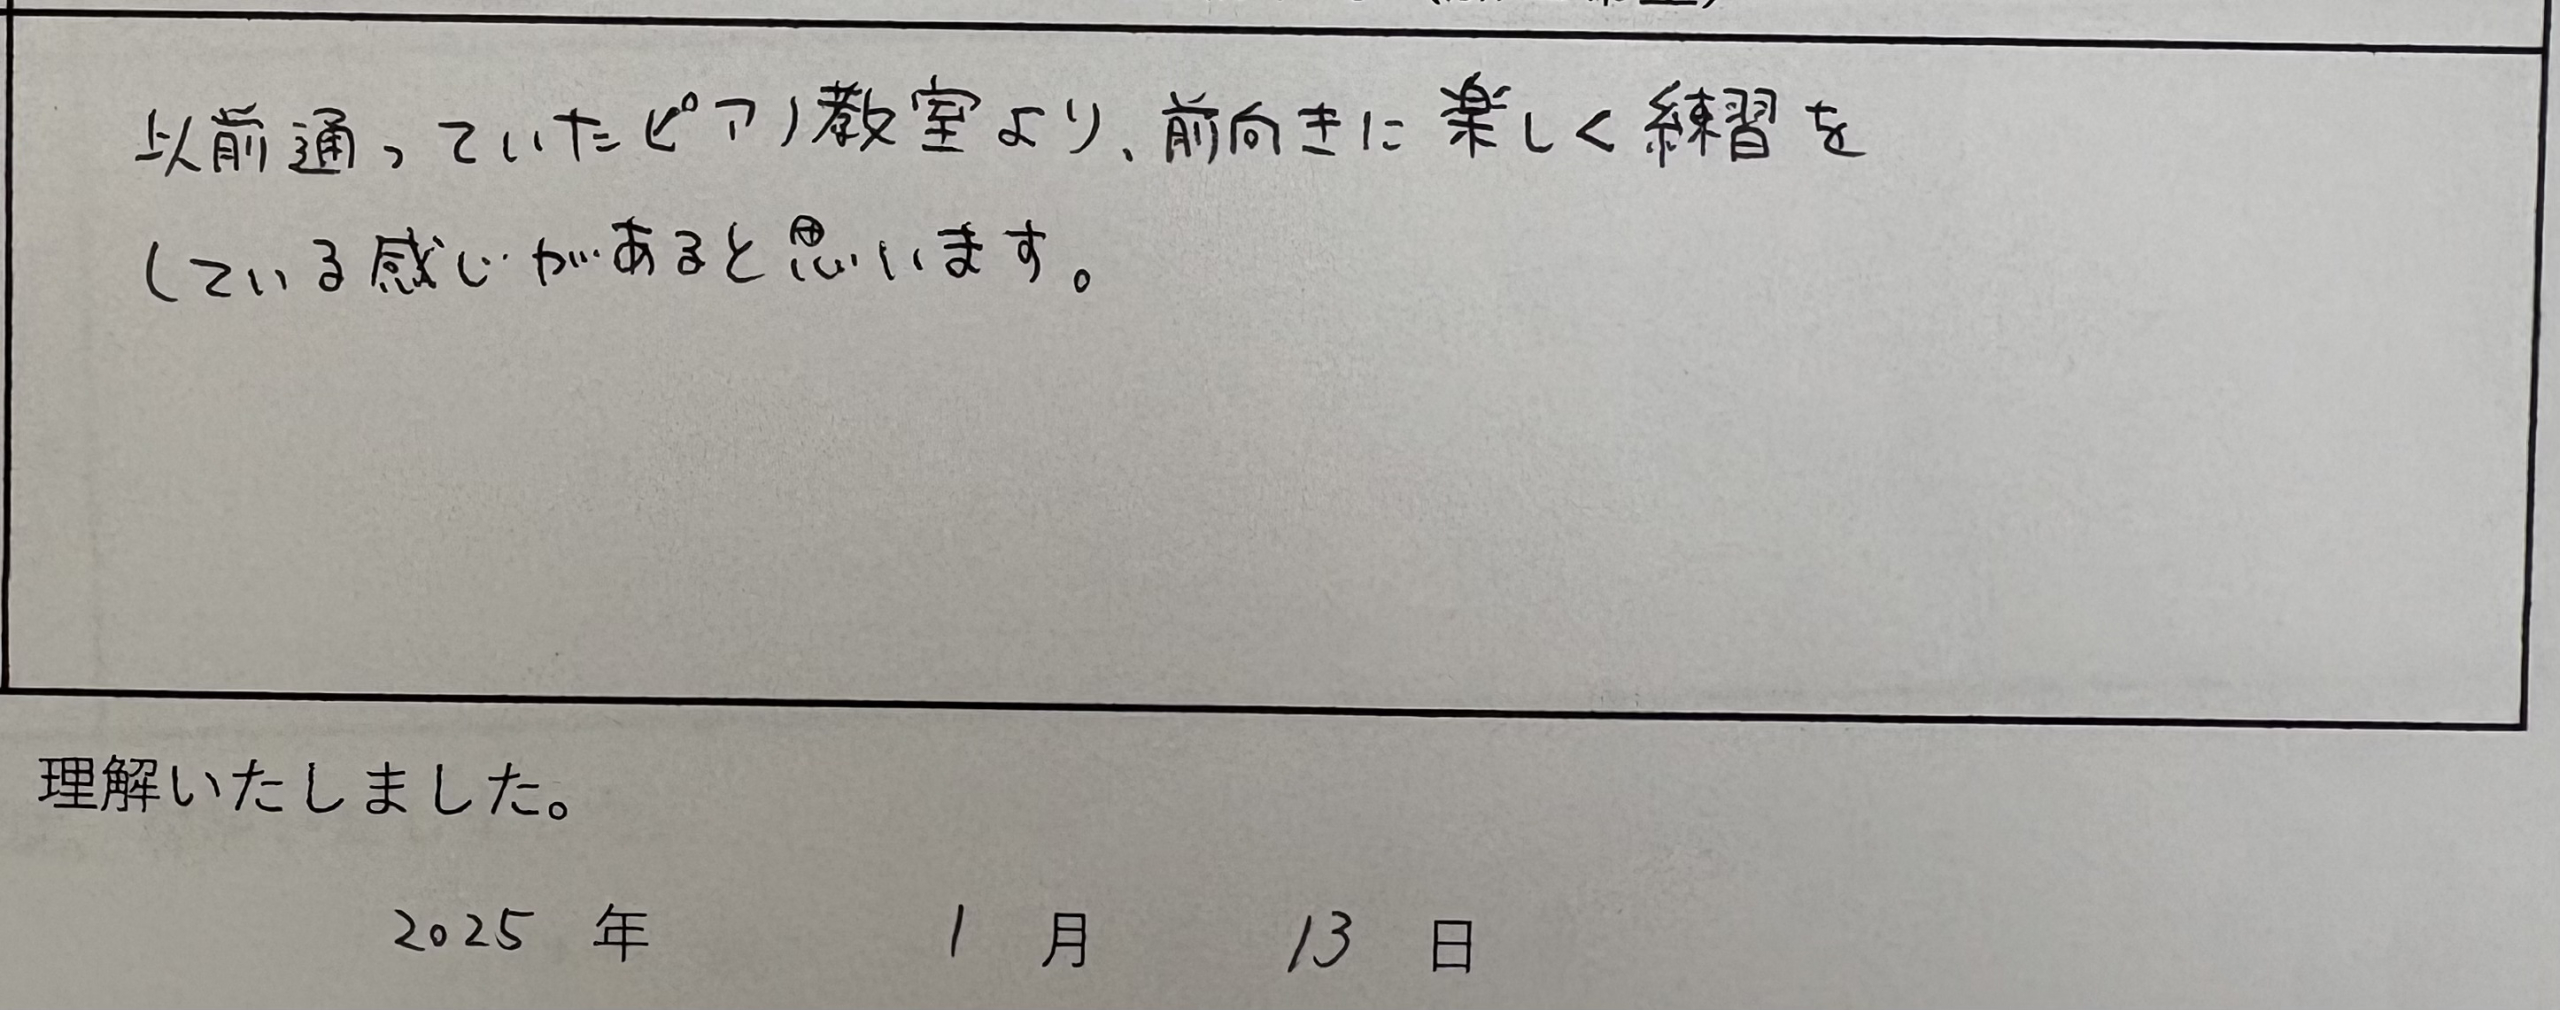 以前通っていたピアノ教室より、前向きに楽しく練習を
している感じがあると思います。
理解いたしました。
2025 年 1 月 13 日